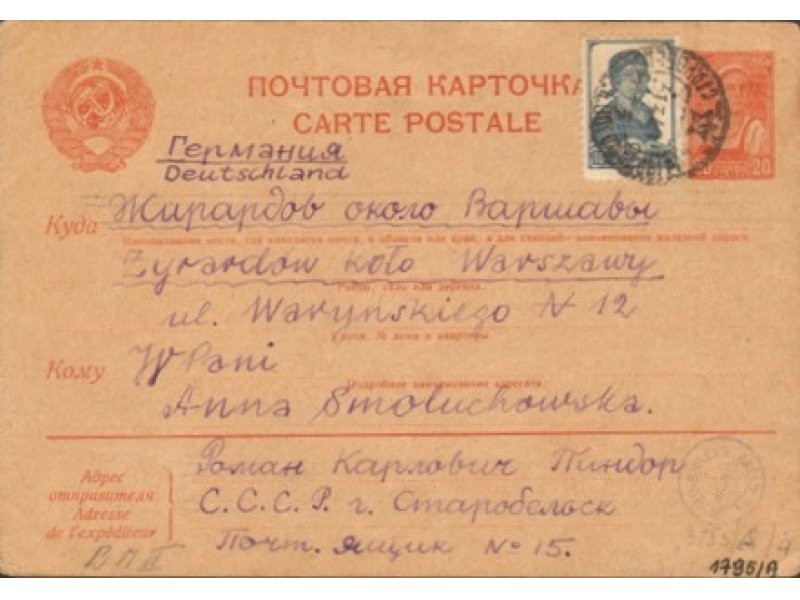 ПОЧТОВАЯ КАРТОЧКА
CARTE POSTALE
20
Германия
Deutschland
Куда Жирардов около Варшавы
Наименование места, где находится почта, и области или края, а для станций—наименование железной дороги
Żyrardow koło Warszawy
Район, село или деревня.
ul. Waryńskiego N 12
Улица, № дома и квартиры
Кому WPani
Подробное наименование адресата.
Anna Smoluchowska.
Адрес
отправителя
Adresse
de l'expéditeur
Роман Карлович Пиндор
С.С.С.Р. г. Старобельск
Почт. ящик № 15.
В П II
1795/A